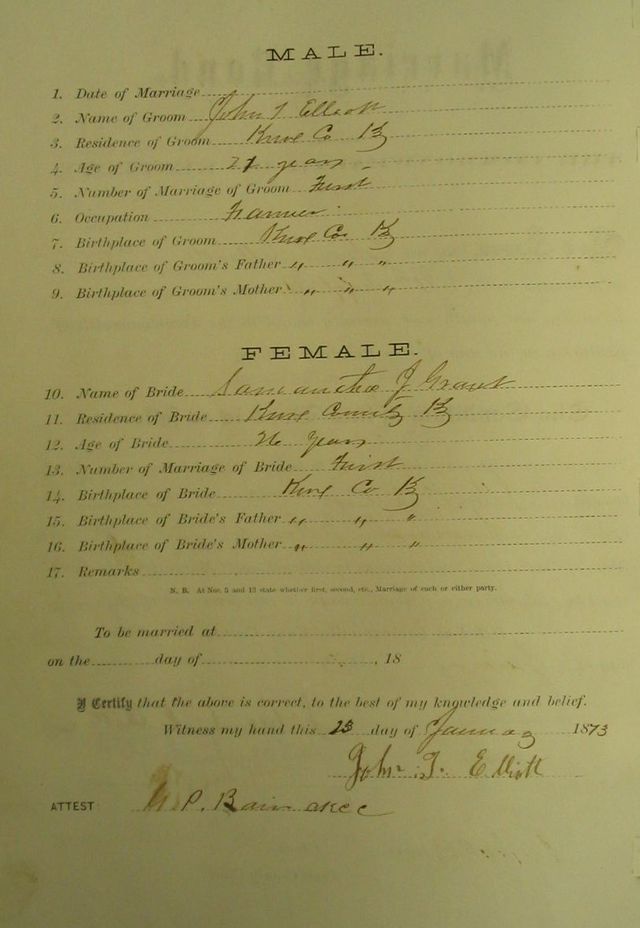 MALE.
1. Date of Marriage
2. Name of Groom John T Elliott
3. Residence of Groom Knox Co Ky
4. Age of Groom 21 years
5. Number of Marriage of Groom First
6. Occupation Farmer
7. Birthplace of Groom Knox Co Ky
8. Birthplace of Groom's Father " " "
9. Birthplace of Groom's Mother " " "
FEMALE.
10. Name of Bride Samantha J Grant
11. Residence of Bride Knox County Ky
12. Age of Bride 26 Years
13. Number of Marriage of Bride First
14. Birthplace of Bride Knox Co Ky
15. Birthplace of Bride's Father " " "
16. Birthplace of Bride's Mother " " "
17. Remarks
N. B. At Nos. 5 and 13 state whether first, second, etc., Marriage of each or either party.
To be married at
on the day of , 18
I Certify that the above is correct, to the best of my knowledge and belief.
Witness my hand this 23 day of January 1873
John T. Elliott
ATTEST P.